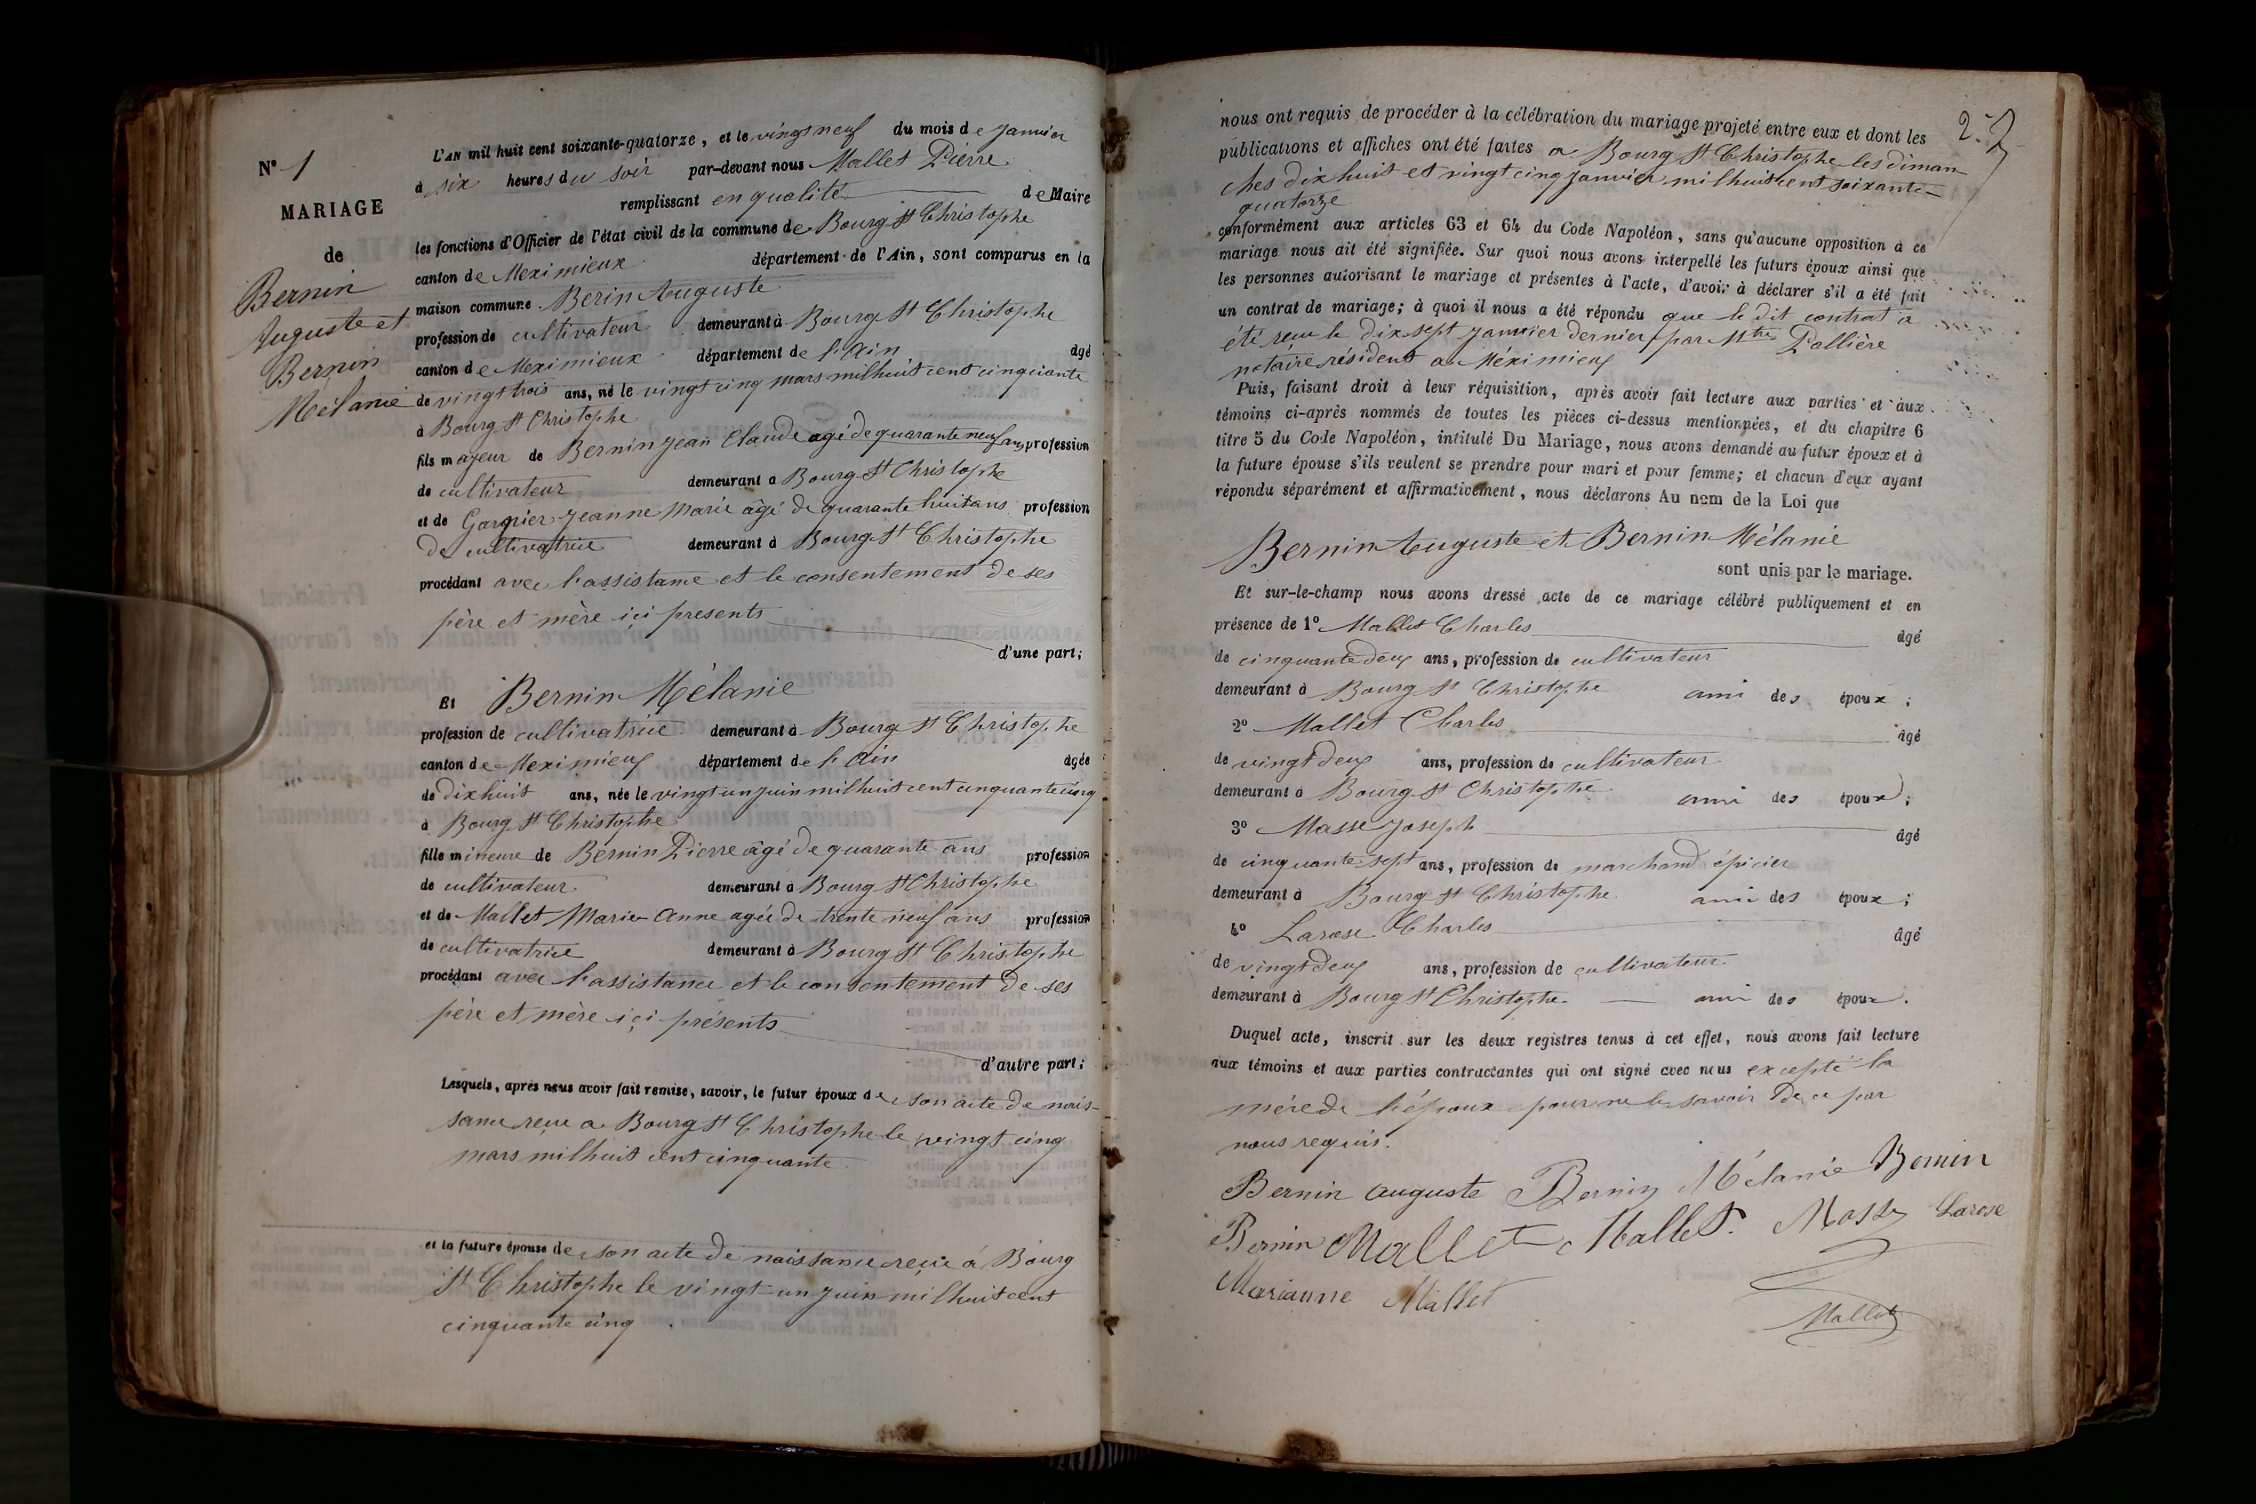 N° 1
MARIAGE
de
Bernin
Auguste et
Bernin
Mélanie
L'AN mil huit cent soixante-quatorze, et le vingt neuf du mois de Janvier
à six heures du soir par-devant nous Mallet Pierre
remplissant en qualité de Maire
les fonctions d'Officier de l'état civil de la commune de Bourg St Christophe
canton de Meximieux département de l'Ain, sont comparus en la
maison commune Berin Auguste
profession de cultivateur demeurant à Bourg St Christophe
canton de Meximieux département de l'Ain âgé
de vingt trois ans, né le vingt cinq mars mil huit cent cinquante
à Bourg St Christophe
fils majeur de Bernin Jean Claude agé de quarante neuf ans profession
de cultivateur demeurant à Bourg St Christophe
et de Garnier Jeanne Marie âgé de quarante huit ans profession
de cultivatrice demeurant à Bourg St Christophe
procédant avec l'assistance et le consentement de ses
père et mère içi presents
d'une part;
Et Bernin Mélanie
profession de cultivatrice demeurant à Bourg St Christophe
canton de Meximieux département de l'Ain âgée
de dix huit ans, née le vingt un juin mil huit cent cinquante cinq
à Bourg St Christophe
fille mineure de Bernin Pierre âgé de quarante ans profession
de cultivateur demeurant à Bourg St Christophe
et de Mallet Marie Anne agée de trente neuf ans profession
de cultivatrice demeurant à Bourg St Christophe
procédant avec l'assistance et le consentement de ses
père et mère içi présents
d'autre part;
Lesquels, après nous avoir fait remise, savoir, le futur époux de son acte de nais-
sance reçu a Bourg St Christophe le vingt cinq
mars mil huit cent cinquante
et la future épouse de son acte de naissance reçu à Bourg
St Christophe le vingt un juin mil huit cent
cinquante cinq
2.
nous ont requis de procéder à la célébration du mariage projeté entre eux et dont les
publications et affiches ont été faites a Bourg St Christophe les diman
ches dix huit et vingt cinq janvier mil huit cent soixante
quatorze
conformément aux articles 63 et 64 du Code Napoléon, sans qu'aucune opposition à ce
mariage nous ait été signifiée. Sur quoi nous avons interpellé les futurs époux ainsi que
les personnes autorisant le mariage et présentes à l'acte, d'avoir à déclarer s'il a été fait
un contrat de mariage; à quoi il nous a été répondu que le dit contrat a
été reçu le dix sept janvier dernier par Mtre Pallière
notaire résident a Méximieux
Puis, faisant droit à leur réquisition, après avoir fait lecture aux parties et aux
témoins ci-après nommés de toutes les pièces ci-dessus mentionnées, et du chapitre 6
titre 5 du Code Napoléon, intitulé Du Mariage, nous avons demandé au futur époux et à
la future épouse s'ils veulent se prendre pour mari et pour femme; et chacun d'eux ayant
répondu séparément et affirmativement, nous déclarons Au nom de la Loi que
Bernin Auguste et Bernin Mélanie
sont unis par le mariage.
Et sur-le-champ nous avons dressé acte de ce mariage célébré publiquement et en
présence de 1° Mallet Charles âgé
de cinquante deux ans, profession de cultivateur
demeurant à Bourg St Christophe ami des époux;
2° Mallet Charles âgé
de vingt deux ans, profession de cultivateur
demeurant à Bourg St Christophe ami des époux;
3° Masse Joseph âgé
de cinquante sept ans, profession de marchand épicier
demeurant à Bourg St Christophe ami des époux;
4° Larose Charles âgé
de vingt deux ans, profession de cultivateur
demeurant à Bourg St Christophe ami des époux.
Duquel acte, inscrit sur les deux registres tenus à cet effet, nous avons fait lecture
aux témoins et aux parties contractantes qui ont signé avec nous excepté la
mére de l'époux pour ne le savoir de ce par
nous requis.
Bernin Auguste Bernin Mélanie Bernin
Bernin Mallet Mallet. Masse Larose
Marianne Mallet
Mallet